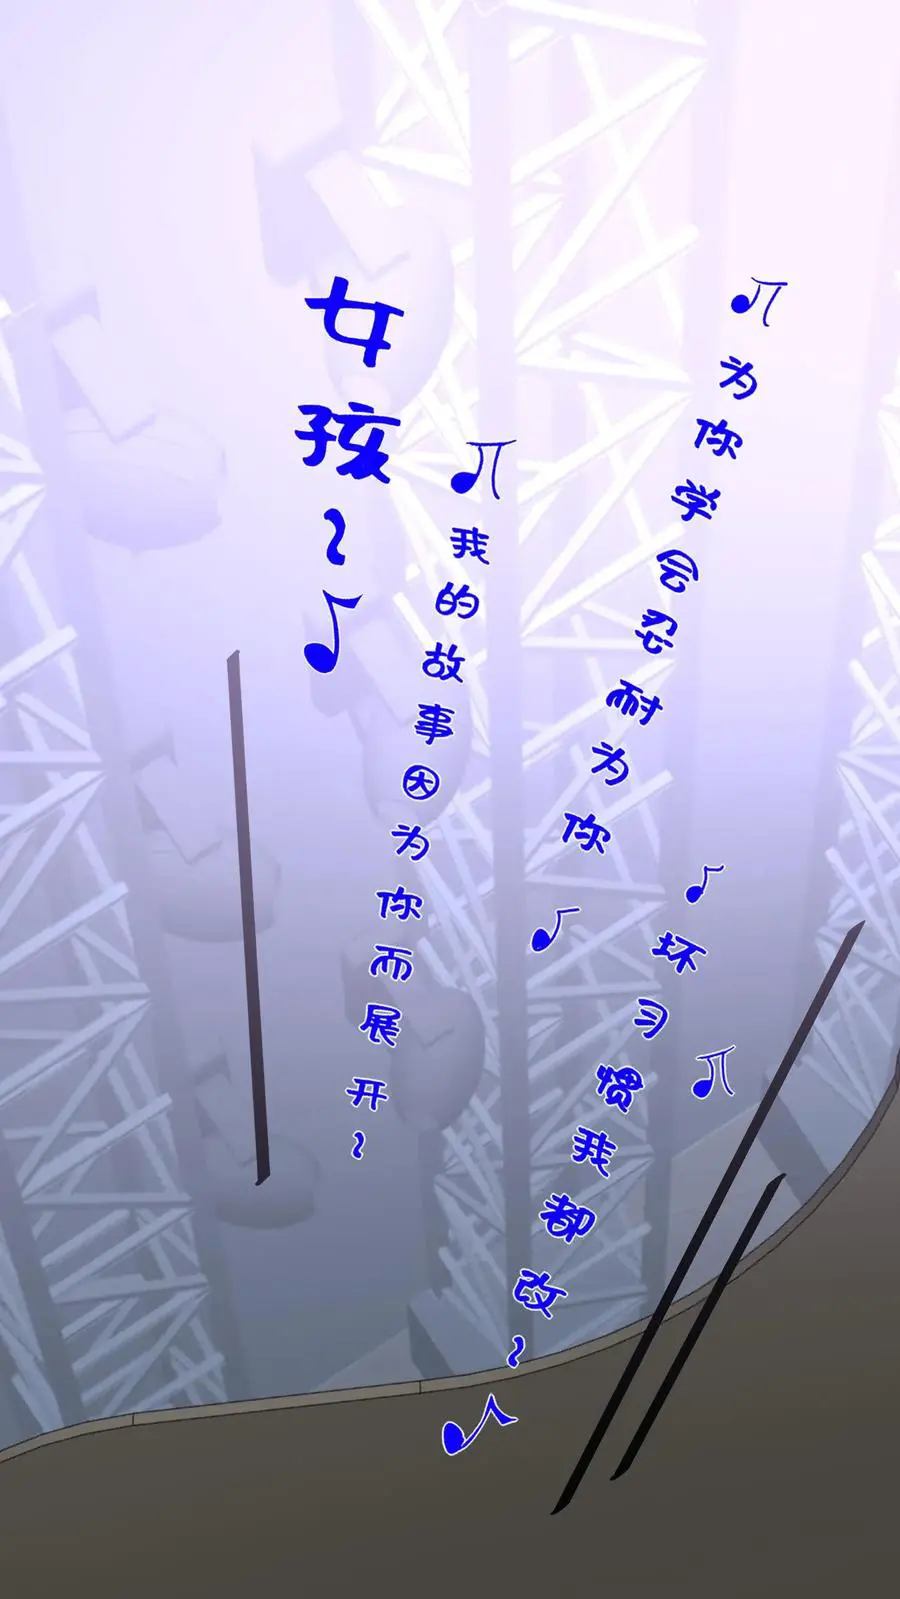 女孩~
我的故事因为你而展开~
为你学会忍耐为你
坏习惯我都改~